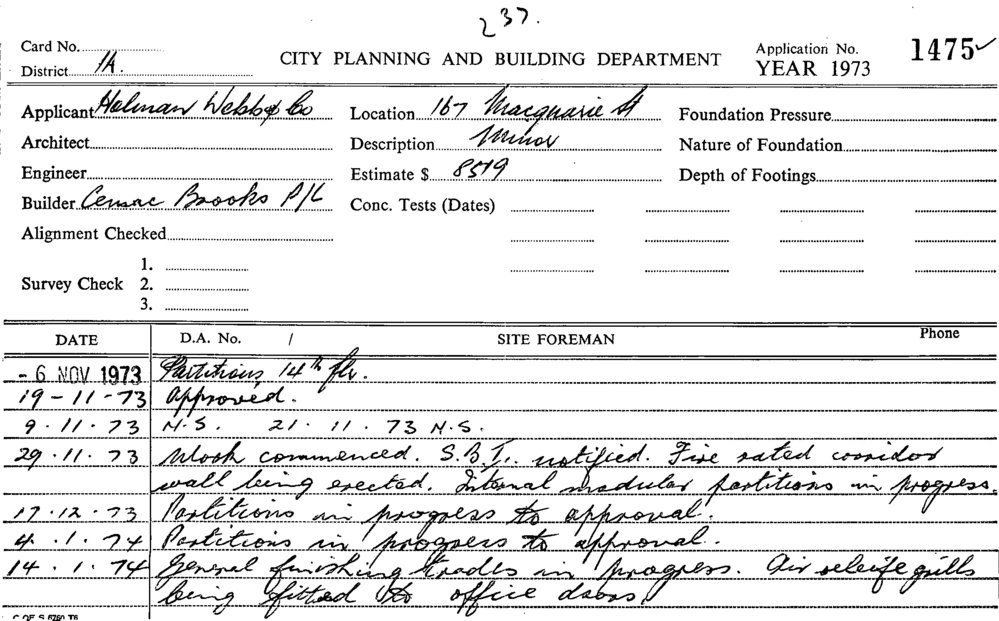 237.
Card No.
District 1A.
CITY PLANNING AND BUILDING DEPARTMENT
Application No. 1475
YEAR 1973
Applicant Holman Webb & Co Location 167 Macquarie St Foundation Pressure
Architect Description Minor Nature of Foundation
Engineer Estimate $ 8519 Depth of Footings
Builder Brooks P/L Conc. Tests (Dates)
Alignment Checked
Survey Check 1.
2.
3.
DATE D.A. No. / SITE FOREMAN Phone
- 6 NOV 1973 Partitions, 14th flr.
19-11-73 Approved.
9.11.73 N.S. 21.11.73 N.S.
29.11.73 Work commenced. S.B.I. notified. Fire rated corridor
wall being erected. Internal modular partitions in progress.
17.12.73 Partitions in progress to approval.
4.1.74 Partitions in progress to approval.
14.1.74 General finishing trades in progress. Air releife grills
being fitted to office doors.
C OF S 6760 T6